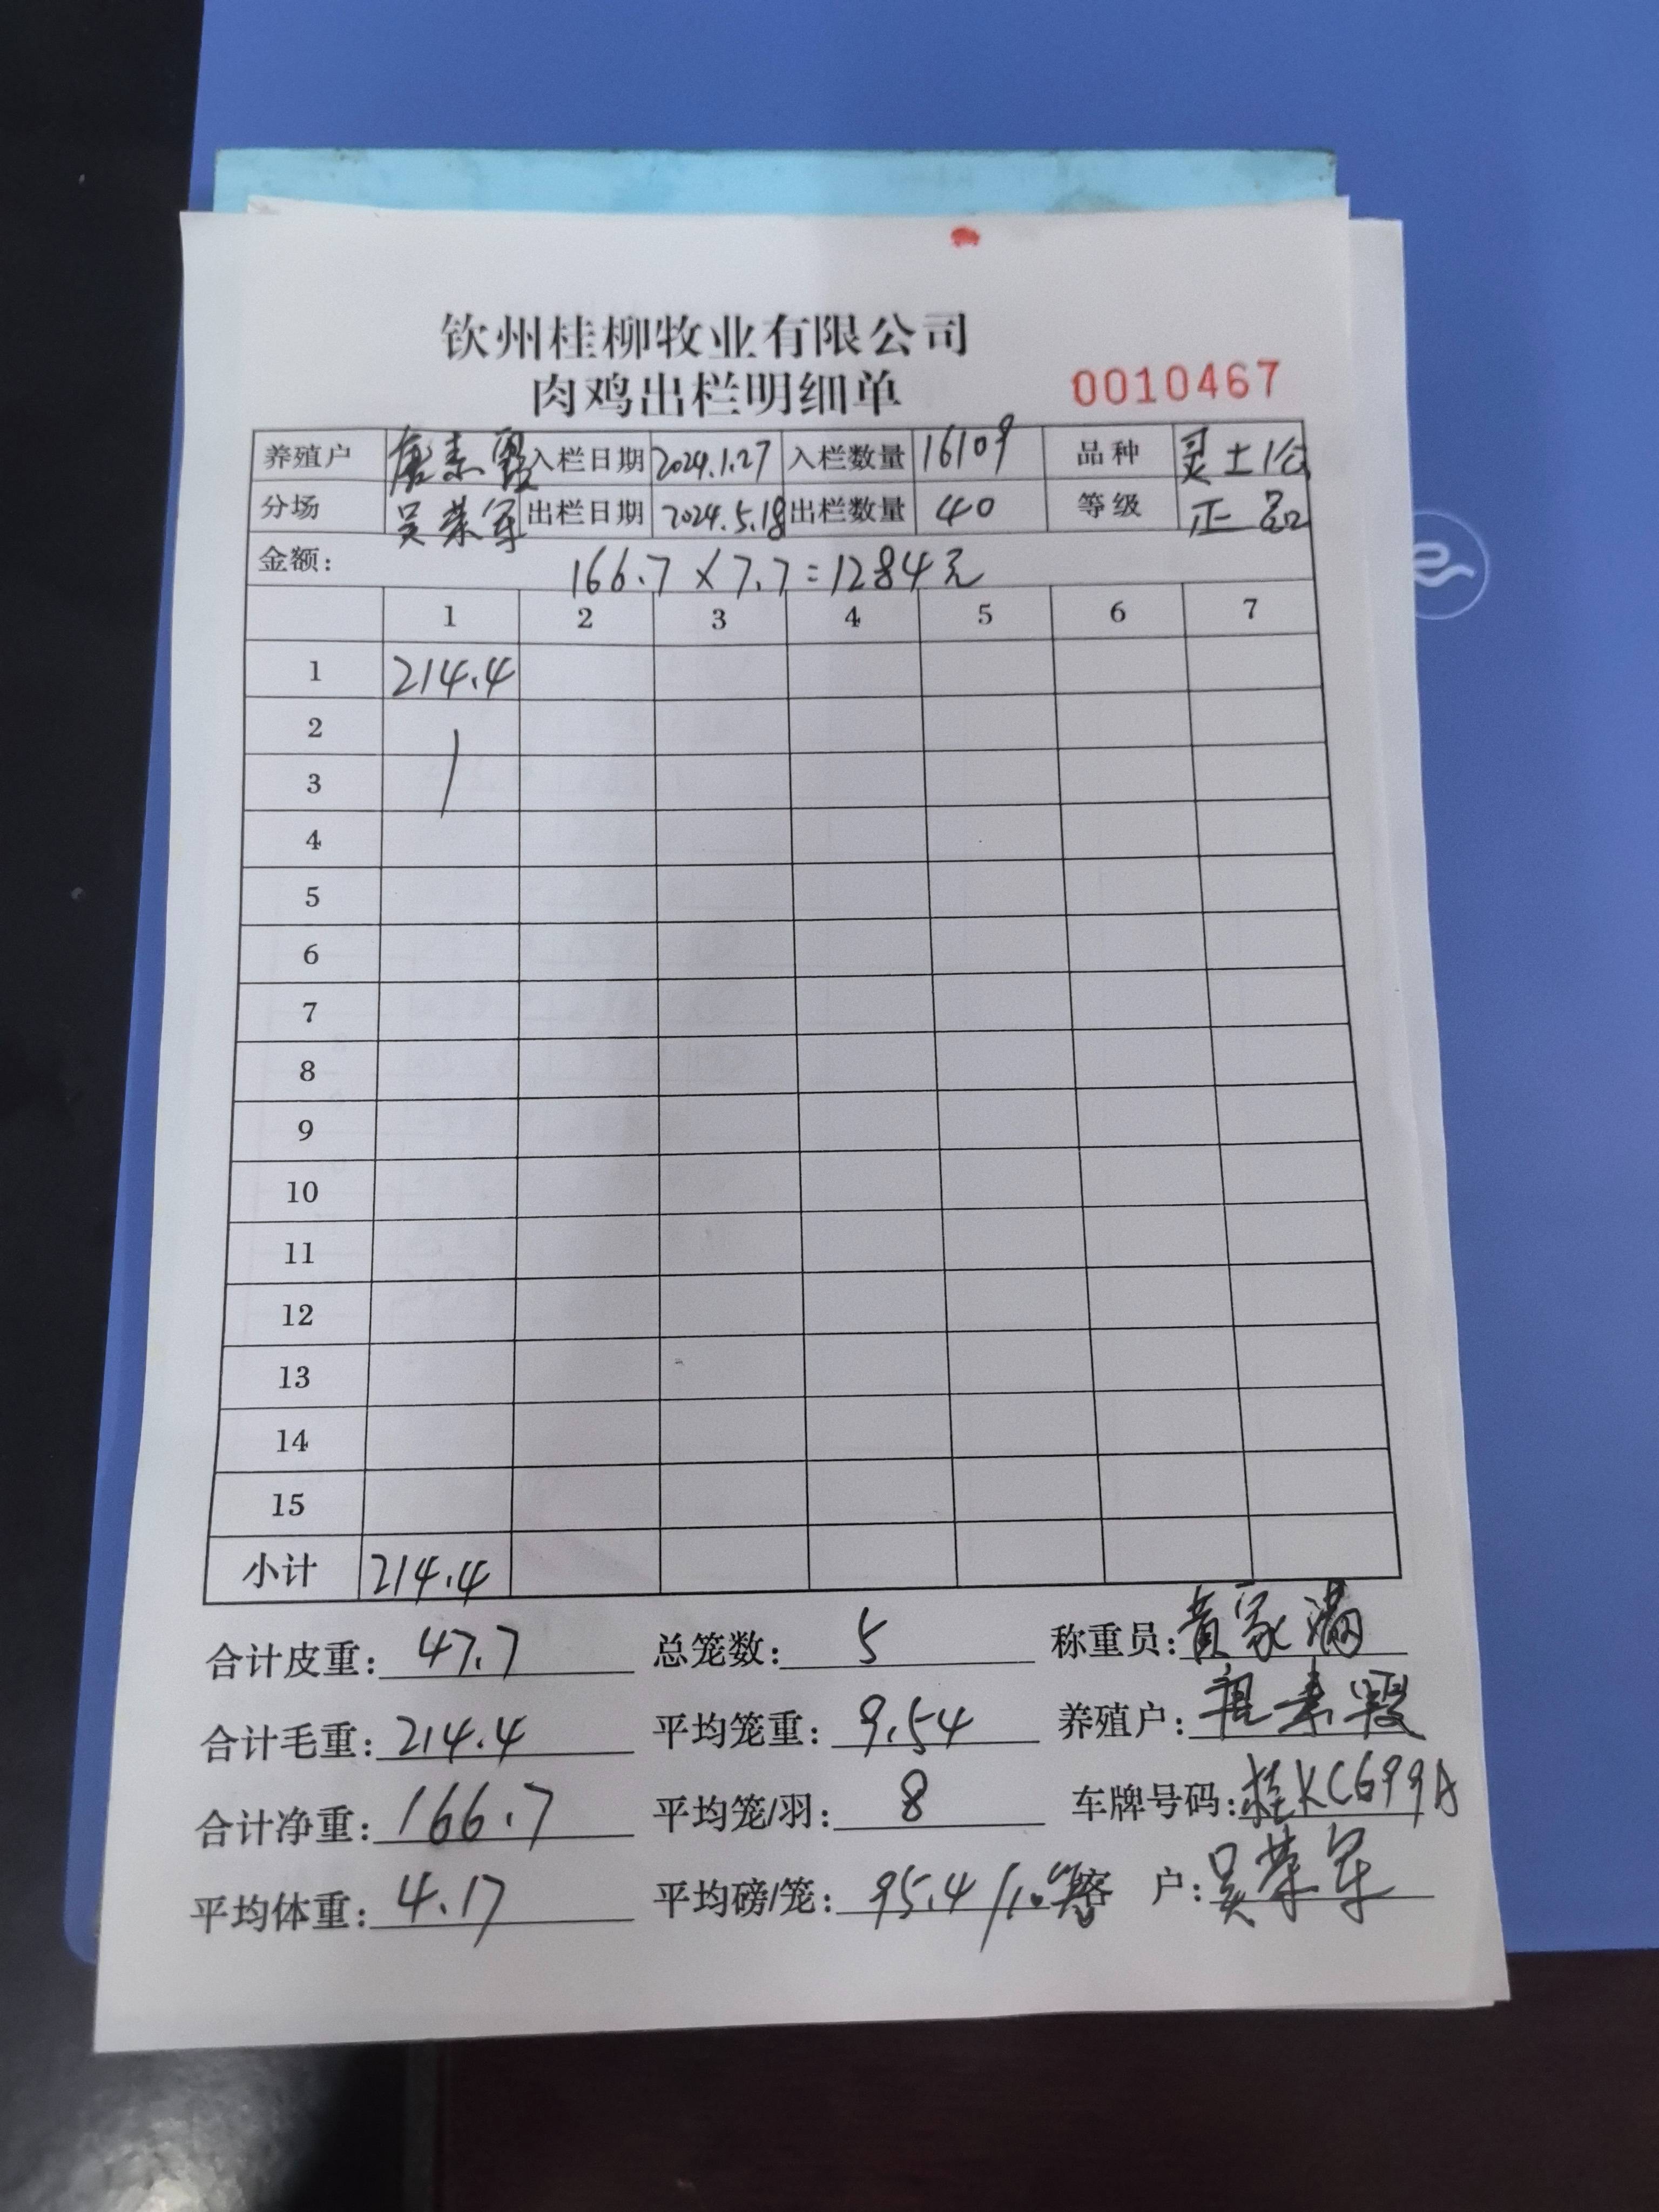 钦州桂柳牧业有限公司
肉鸡出栏明细单 0010467
养殖户 唐素霞 入栏日期 2024.1.27 入栏数量 16109 品种 灵土1公
分场 吴荣军 出栏日期 2024.5.18 出栏数量 40 等级 正品
金额: 166.7×7.7=1284元
1 2 3 4 5 6 7
1 214.4
2
3
4
5
6
7
8
9
10
11
12
13
14
15
小计 214.4
合计皮重: 47.7 总笼数: 5 称重员: 黄家满
合计毛重: 214.4 平均笼重: 9.54 养殖户: 唐素霞
合计净重: 166.7 平均笼/羽: 8 车牌号码: 桂KC699A
平均体重: 4.17 平均磅/笼: 95.4/10 客 户: 吴荣军